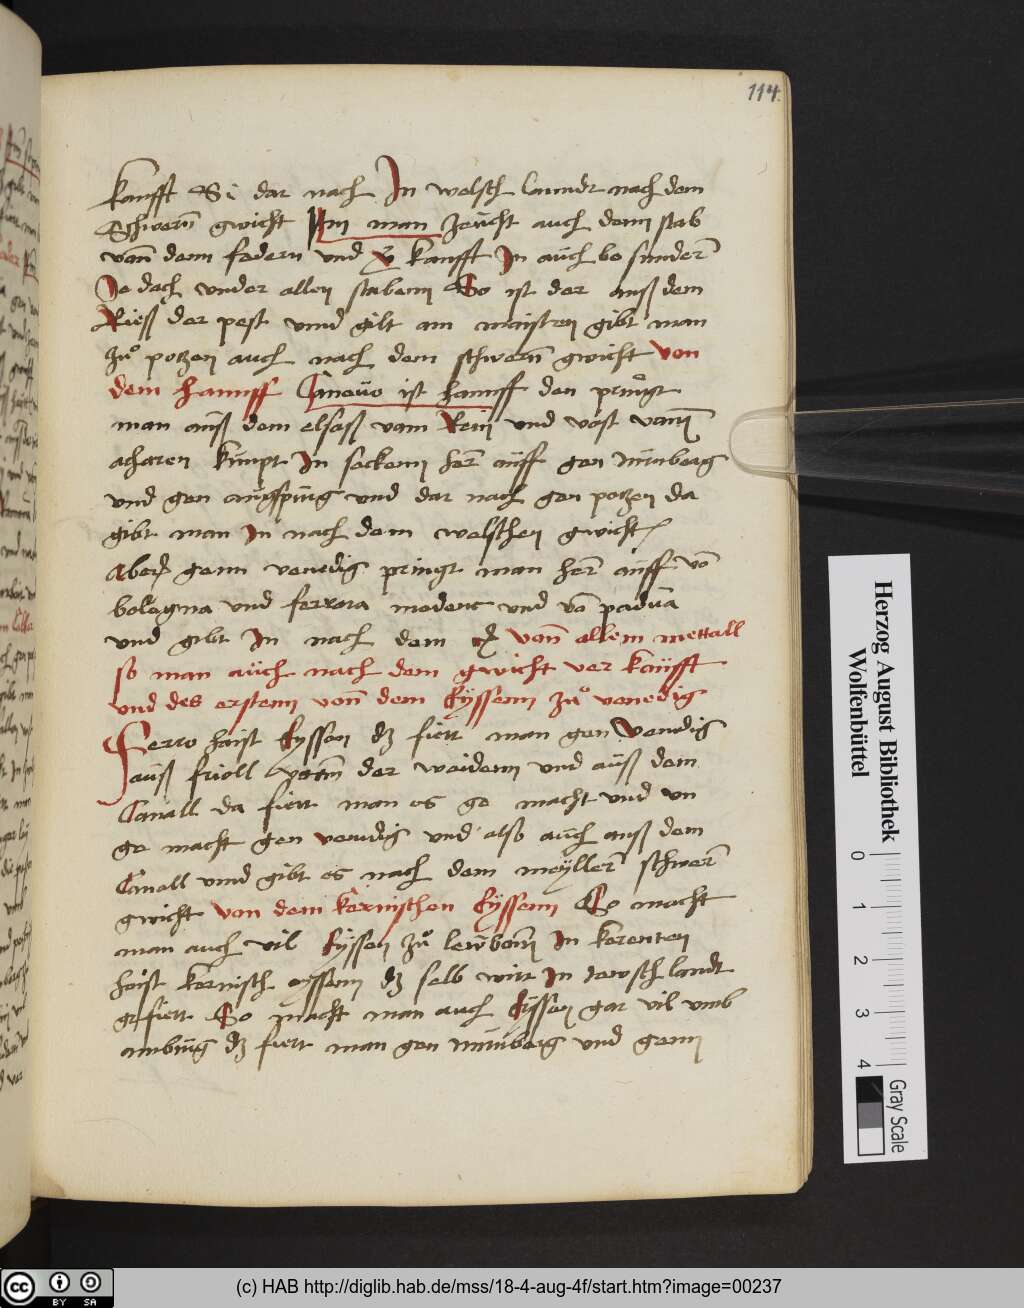 114
kaufft Si dar nach In welsch lanndt nach dem
Schwern gwicht Im man zeücht auch denn stab
vann denn federn und kaufft In aüch be sünder
Je doch under allen stabenn So ist der auß dem
Rieß der pest unnd gilt am maisten gibt man
zů potzen auch nach dem schwern gwicht von
dem hannff Canouo ist hanff den pringt
man auß dem elsaß vam Rein und vast vann
acheren kümpt In seckenn her aüff gen nürnberg
und gen aügspürg und dar nach gen potzen da
gibt man In nach dem welschen gwicht
Aber genn venedig pringt man her auff vō
bologna und ferrara modene und vō padūa
und gibt In nach dem vonn allem mettall
so man aüch nach dem gwicht ver kaüfft
und des erstenn vonn dem Eÿssenn zů venedig
Ferro haist Eÿssen dz fiert man gen Venedig
aüß frioll vonn der weidenn und aüß dem
Canall da fiert man es ge macht und un
ge macht gen venedig und also aüch auß dem
Canall unnd gibt es nach dem meÿller schwer
gwicht von dem kernischen Eÿssenn So macht
man auch vil Eÿssen zů lewbenn In kerenten
haist kernisch eÿssenn dz selb wirt In tewsch landt
gefiert So macht man auch Eÿssen gar vil umb
ambürg dz fiert man gen nürnberg und genn
Herzog August Bibliothek
Wolfenbüttel
0 1 2 3 4
Gray Scale
cc BY SA
(c) HAB http://diglib.hab.de/mss/18-4-aug-4f/start.htm?image=00237